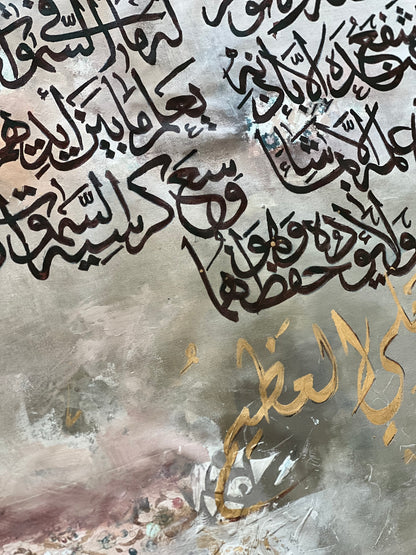 له ما في السمو
يشفع عنده إلا بإذنه يعلم ما بين أيديهم
علمه إلا بما شاء وسع كرسيه السموت
ولا يؤده حفظهما وهو
العلي العظيم